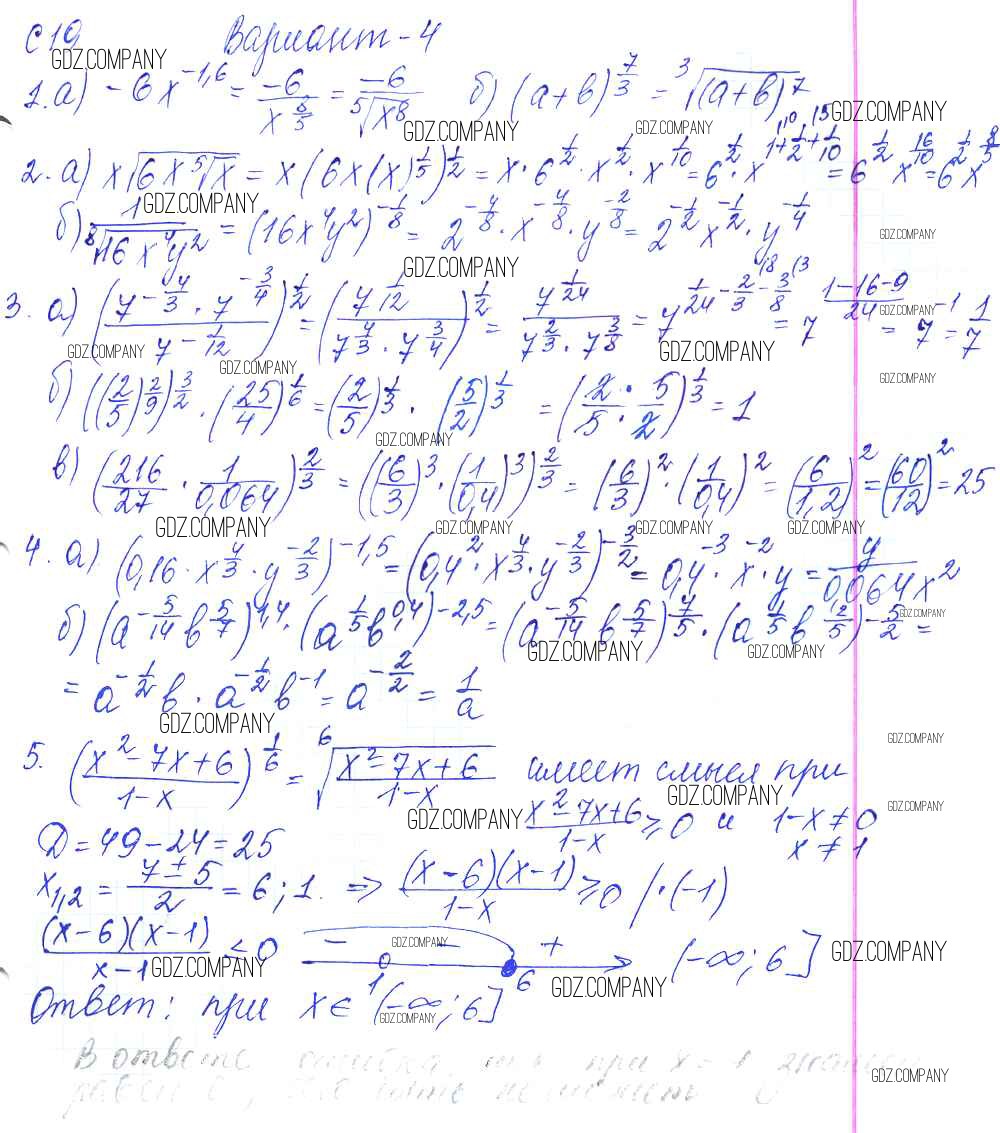 С 19 Вариант-4
GDZ.COMPANY
1. а) -6x^{-1,6} = \frac{-6}{x^{\frac{8}{5}}} = \frac{-6}{\sqrt[5]{x^8}} б) (a+b)^{\frac{7}{3}} = \sqrt[3]{(a+b)^7}
GDZ.COMPANY GDZ.COMPANY GDZ.COMPANY
2. а) x\sqrt{6x\sqrt[5]{x}} = x(6x(x)^{\frac{1}{5}})^{\frac{1}{2}} = x·6^{\frac{1}{2}}·x^{\frac{1}{2}}·x^{\frac{1}{10}} = 6^{\frac{1}{2}}·x^{1+\frac{1}{2}+\frac{1}{10}} = 6^{\frac{1}{2}}x^{\frac{16}{10}} = 6^{\frac{1}{2}}x^{\frac{8}{5}}
GDZ.COMPANY
б) \frac{1}{\sqrt[8]{16x^4y^2}} = (16x^4y^2)^{-\frac{1}{8}} = 2^{-\frac{4}{8}}·x^{-\frac{4}{8}}·y^{-\frac{2}{8}} = 2^{-\frac{1}{2}}x^{-\frac{1}{2}}·y^{-\frac{1}{4}}
GDZ.COMPANY GDZ.COMPANY
3. а) (\frac{7^{-\frac{4}{3}}·7^{-\frac{3}{4}}}{7^{-\frac{1}{12}}})^{\frac{1}{2}} = (\frac{7^{\frac{1}{12}}}{7^{\frac{4}{3}}·7^{\frac{3}{4}}})^{\frac{1}{2}} = \frac{7^{\frac{1}{24}}}{7^{\frac{2}{3}}·7^{\frac{3}{8}}} = 7^{\frac{1}{24}-\frac{2}{3}-\frac{3}{8}} = 7^{\frac{1-16-9}{24}} = 7^{-1} = \frac{1}{7}
GDZ.COMPANY GDZ.COMPANY GDZ.COMPANY GDZ.COMPANY GDZ.COMPANY
б) ((\frac{2}{5})^{\frac{2}{9}})^{\frac{3}{2}}·(\frac{25}{4})^{\frac{1}{6}} = (\frac{2}{5})^{\frac{1}{3}}·(\frac{5}{2})^{\frac{1}{3}} = (\frac{2}{5}·\frac{5}{2})^{\frac{1}{3}} = 1
GDZ.COMPANY
в) (\frac{216}{27}·\frac{1}{0,064})^{\frac{2}{3}} = ((\frac{6}{3})^3·(\frac{1}{0,4})^3)^{\frac{2}{3}} = (\frac{6}{3})^2·(\frac{1}{0,4})^2 = (\frac{6}{1,2})^2 = (\frac{60}{12})^2 = 25
GDZ.COMPANY GDZ.COMPANY GDZ.COMPANY GDZ.COMPANY
4. а) (0,16·x^{\frac{4}{3}}·y^{-\frac{2}{3}})^{-1,5} = (0,4^2·x^{\frac{4}{3}}·y^{-\frac{2}{3}})^{-\frac{3}{2}} = 0,4^{-3}·x^{-2}·y = \frac{y}{0,064x^2}
GDZ.COMPANY
б) (a^{-\frac{5}{14}}b^{\frac{5}{7}})^{1,4}·(a^{\frac{1}{5}}b^{0,4})^{-2,5} = (a^{-\frac{5}{14}}b^{\frac{5}{7}})^{\frac{7}{5}}·(a^{\frac{1}{5}}b^{\frac{2}{5}})^{-\frac{5}{2}} =
GDZ.COMPANY GDZ.COMPANY
= a^{-\frac{1}{2}}b·a^{-\frac{1}{2}}b^{-1} = a^{-\frac{2}{2}} = \frac{1}{a}
GDZ.COMPANY GDZ.COMPANY
5. (\frac{x^2-7x+6}{1-x})^{\frac{1}{6}} = \sqrt[6]{\frac{x^2-7x+6}{1-x}} имеет смысл при
GDZ.COMPANY GDZ.COMPANY GDZ.COMPANY
\frac{x^2-7x+6}{1-x} ≥ 0 и 1-x ≠ 0
x ≠ 1
D = 49-24 = 25
x_{1,2} = \frac{7±5}{2} = 6; 1. => \frac{(x-6)(x-1)}{1-x} ≥ 0 /·(-1)
\frac{(x-6)(x-1)}{x-1} ≤ 0 - - + 1 6 (-∞; 6]
GDZ.COMPANY GDZ.COMPANY GDZ.COMPANY GDZ.COMPANY
Ответ: при x ∈ (-∞; 6]
GDZ.COMPANY
В ответе ошибка при x = 1
GDZ.COMPANY